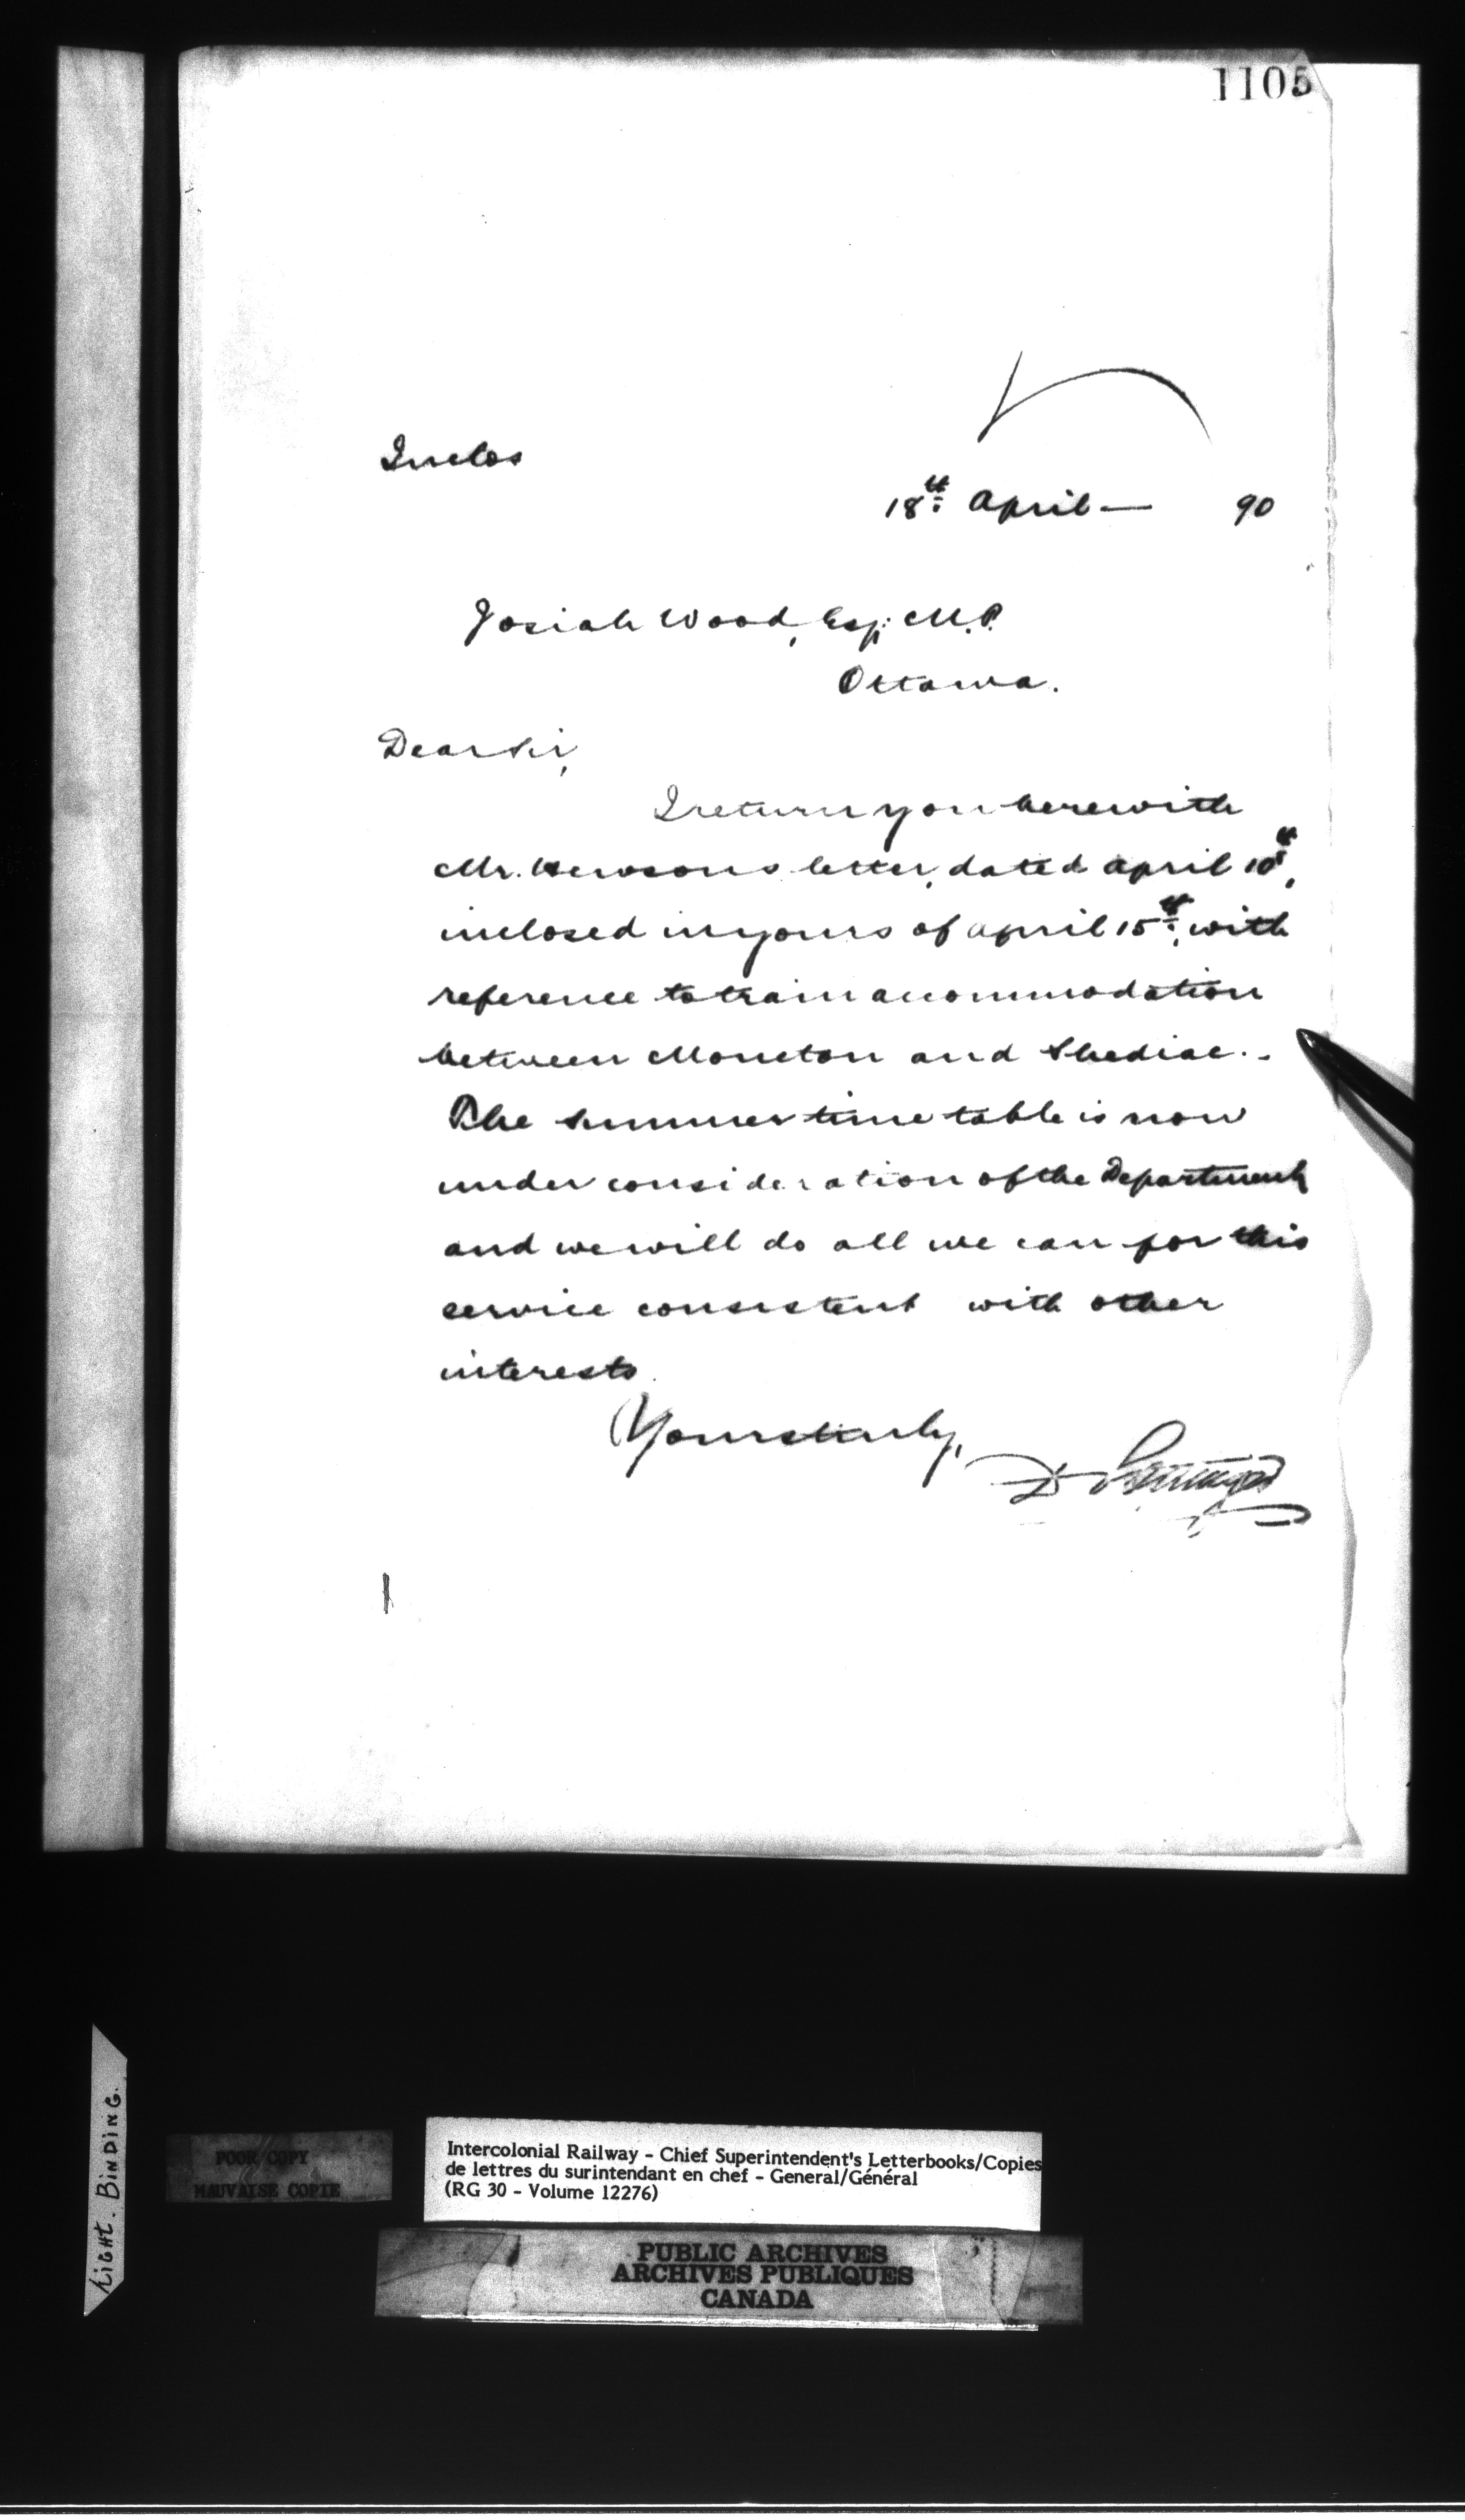 1105
Inclos
18th April — 90
Josiah Wood, Esq: M.P.
Ottawa.
Dear Sir,
I return you herewith
Mr. Hewsons letter, dated April 10th,
inclosed in yours of April 15th, with
reference to train accommodation
between Moncton and Shediac. -
The summer time table is now
under consideration of the Department
and we will do all we can for this
service consistent with other
interests.
Yours truly,
D Pottinger
Tight. Binding.
POOR COPY
MAUVAISE COPIE
Intercolonial Railway - Chief Superintendent's Letterbooks/Copies
de lettres du surintendant en chef - General/Général
(RG 30 - Volume 12276)
PUBLIC ARCHIVES
ARCHIVES PUBLIQUES
CANADA